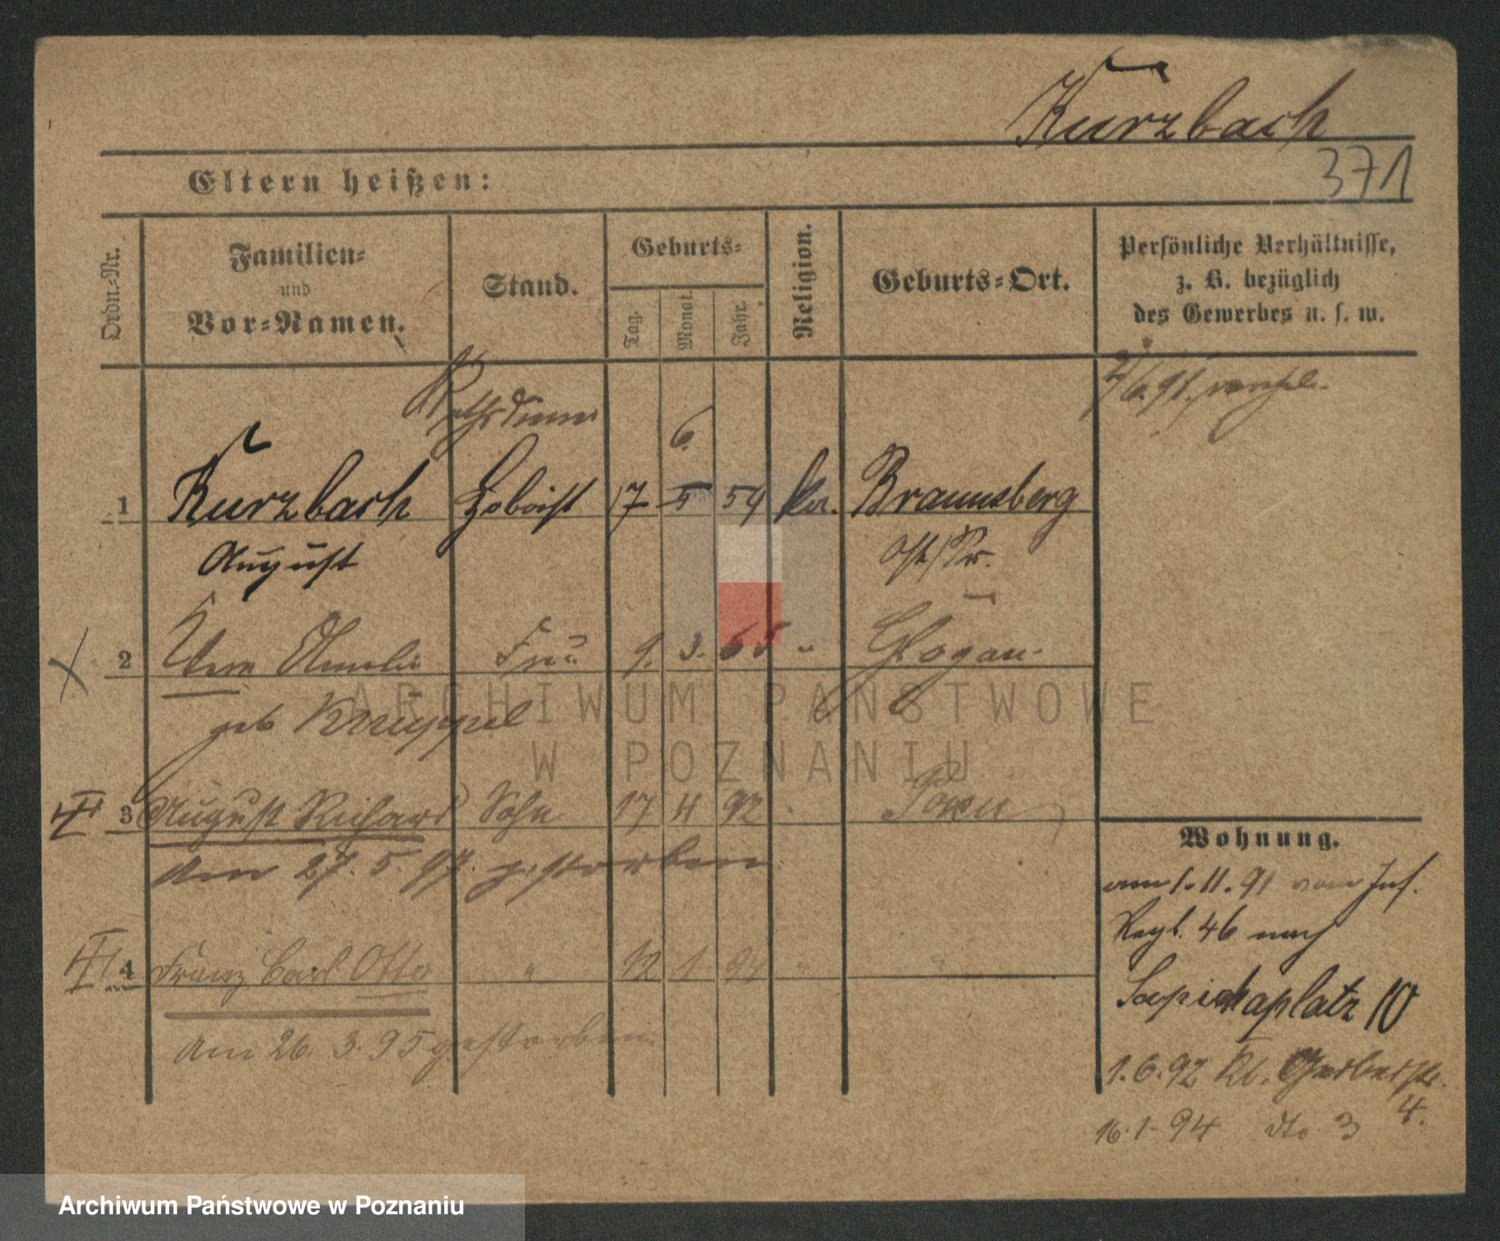 Kurzbach
371
Eltern heißen:
Ordn.-Nr.
Familien-
und
Vor-Namen.
Stand.
Geburts-
Tag.
Monat.
Jahr.
Religion.
Geburts-Ort.
Persönliche Verhältnisse,
z. B. bezüglich
des Gewerbes u. s. w.
Rathsdiener
6.
1 Kurzbach Hoboist 17 5 54 ka. Braunsberg
August Ost/Pr.
2 Amalie Frau 9. 3. 65 " Glogau
geb. Knuppel
3 August Richard Sohn 17 4 92 Posen
Am 27. 5. 97. gestorben
4 Franz Carl Otto " 12 1 94 "
Am 26. 3. 95 gestorben.
Wohnung.
am 1. 11. 91 vom Inf.
Regt. 46 nach
Sapiehaplatz 10
1. 6. 92 Kl. Gerberstr.
4.
16. 1. 94 dto 3
ARCHIWUM PAŃSTWOWE
W POZNANIU
Archiwum Państwowe w Poznaniu